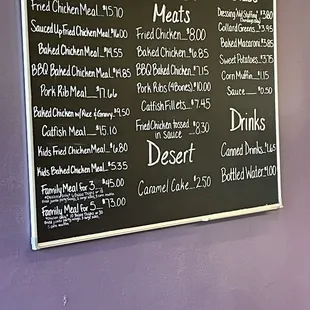 Fried Chicken Meal...$15.70
Sauced Up Fried Chicken Meal...$16.00
Baked Chicken Meal...$14.55
BBQ Baked Chicken Meal...$14.85
Pork Rib Meal...17.66
Baked Chicken w/Rice & Gravy...$9.50
Catfish Meal...$15.10
Kids Fried Chicken Meal...$6.80
Kids Baked Chicken Meal...$5.35
Family Meal for 3...$45.00
Family Meal for 5...$73.00
Meats
Fried Chicken...$8.00
Baked Chicken...$6.85
BBQ Baked Chicken...$7.15
Pork Ribs (4 Bones)...$10.00
Catfish Fillets...$7.45
Fried Chicken tossed
in Sauce...8.30
Desert
Caramel Cake...$2.50
Collard Greens...$3.95
Baked Macaroni...$3.85
Sweet Potatoes...$3.75
Corn Muffin...$1.15
Sauce...$0.50
Drinks
Canned Drinks...$1.65
Bottled Water...$1.00